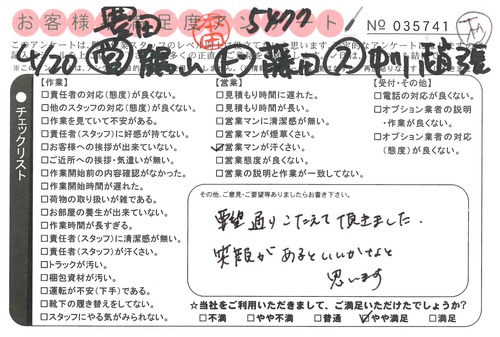 お客様満足度アンケート
5477
No 035741
6/20
【作業】
□責任者の対応(態度)が良くない。
□他のスタッフの対応(態度)が良くない。
□作業を見ていて不安がある。
□責任者(スタッフ)に好感が持てない。
□お客様への挨拶が出来ていない。
□ご近所への挨拶・気遣いが無い。
□作業開始前の内容確認がなかった。
□作業開始時間が遅れた。
□荷物の取り扱いが雑である。
□お部屋の養生が出来ていない。
□作業時間が長すぎる。
□責任者(スタッフ)に清潔感が無い。
□責任者(スタッフ)が汗くさい。
□トラックが汚い。
□梱包資材が汚い。
□運転が不安(下手)である。
□靴下の履き替えをしてない。
□スタッフにやる気がみられない。
【営業】
□見積もり時間に遅れた。
□見積もり時間が長い。
□営業マンに清潔感が無い。
□営業マンが煙草くさい。
□営業マンが汗くさい。
□営業態度が良くない。
□営業の説明と作業が一致してない。
【受付・その他】
□電話の対応が良くない。
□オプション業者の説明
・作業が良くない。
□オプション業者の対応
(態度)が良くない。
チェックリスト
その他、ご意見・ご要望等ありましたらお書き下さい。
要望通りこたえて頂きました。
笑顔があるといいかなと
思います
☆当社をご利用いただきまして、ご満足いただけたでしょうか?
□不満 □やや不満 □普通 ☑やや満足 □満足